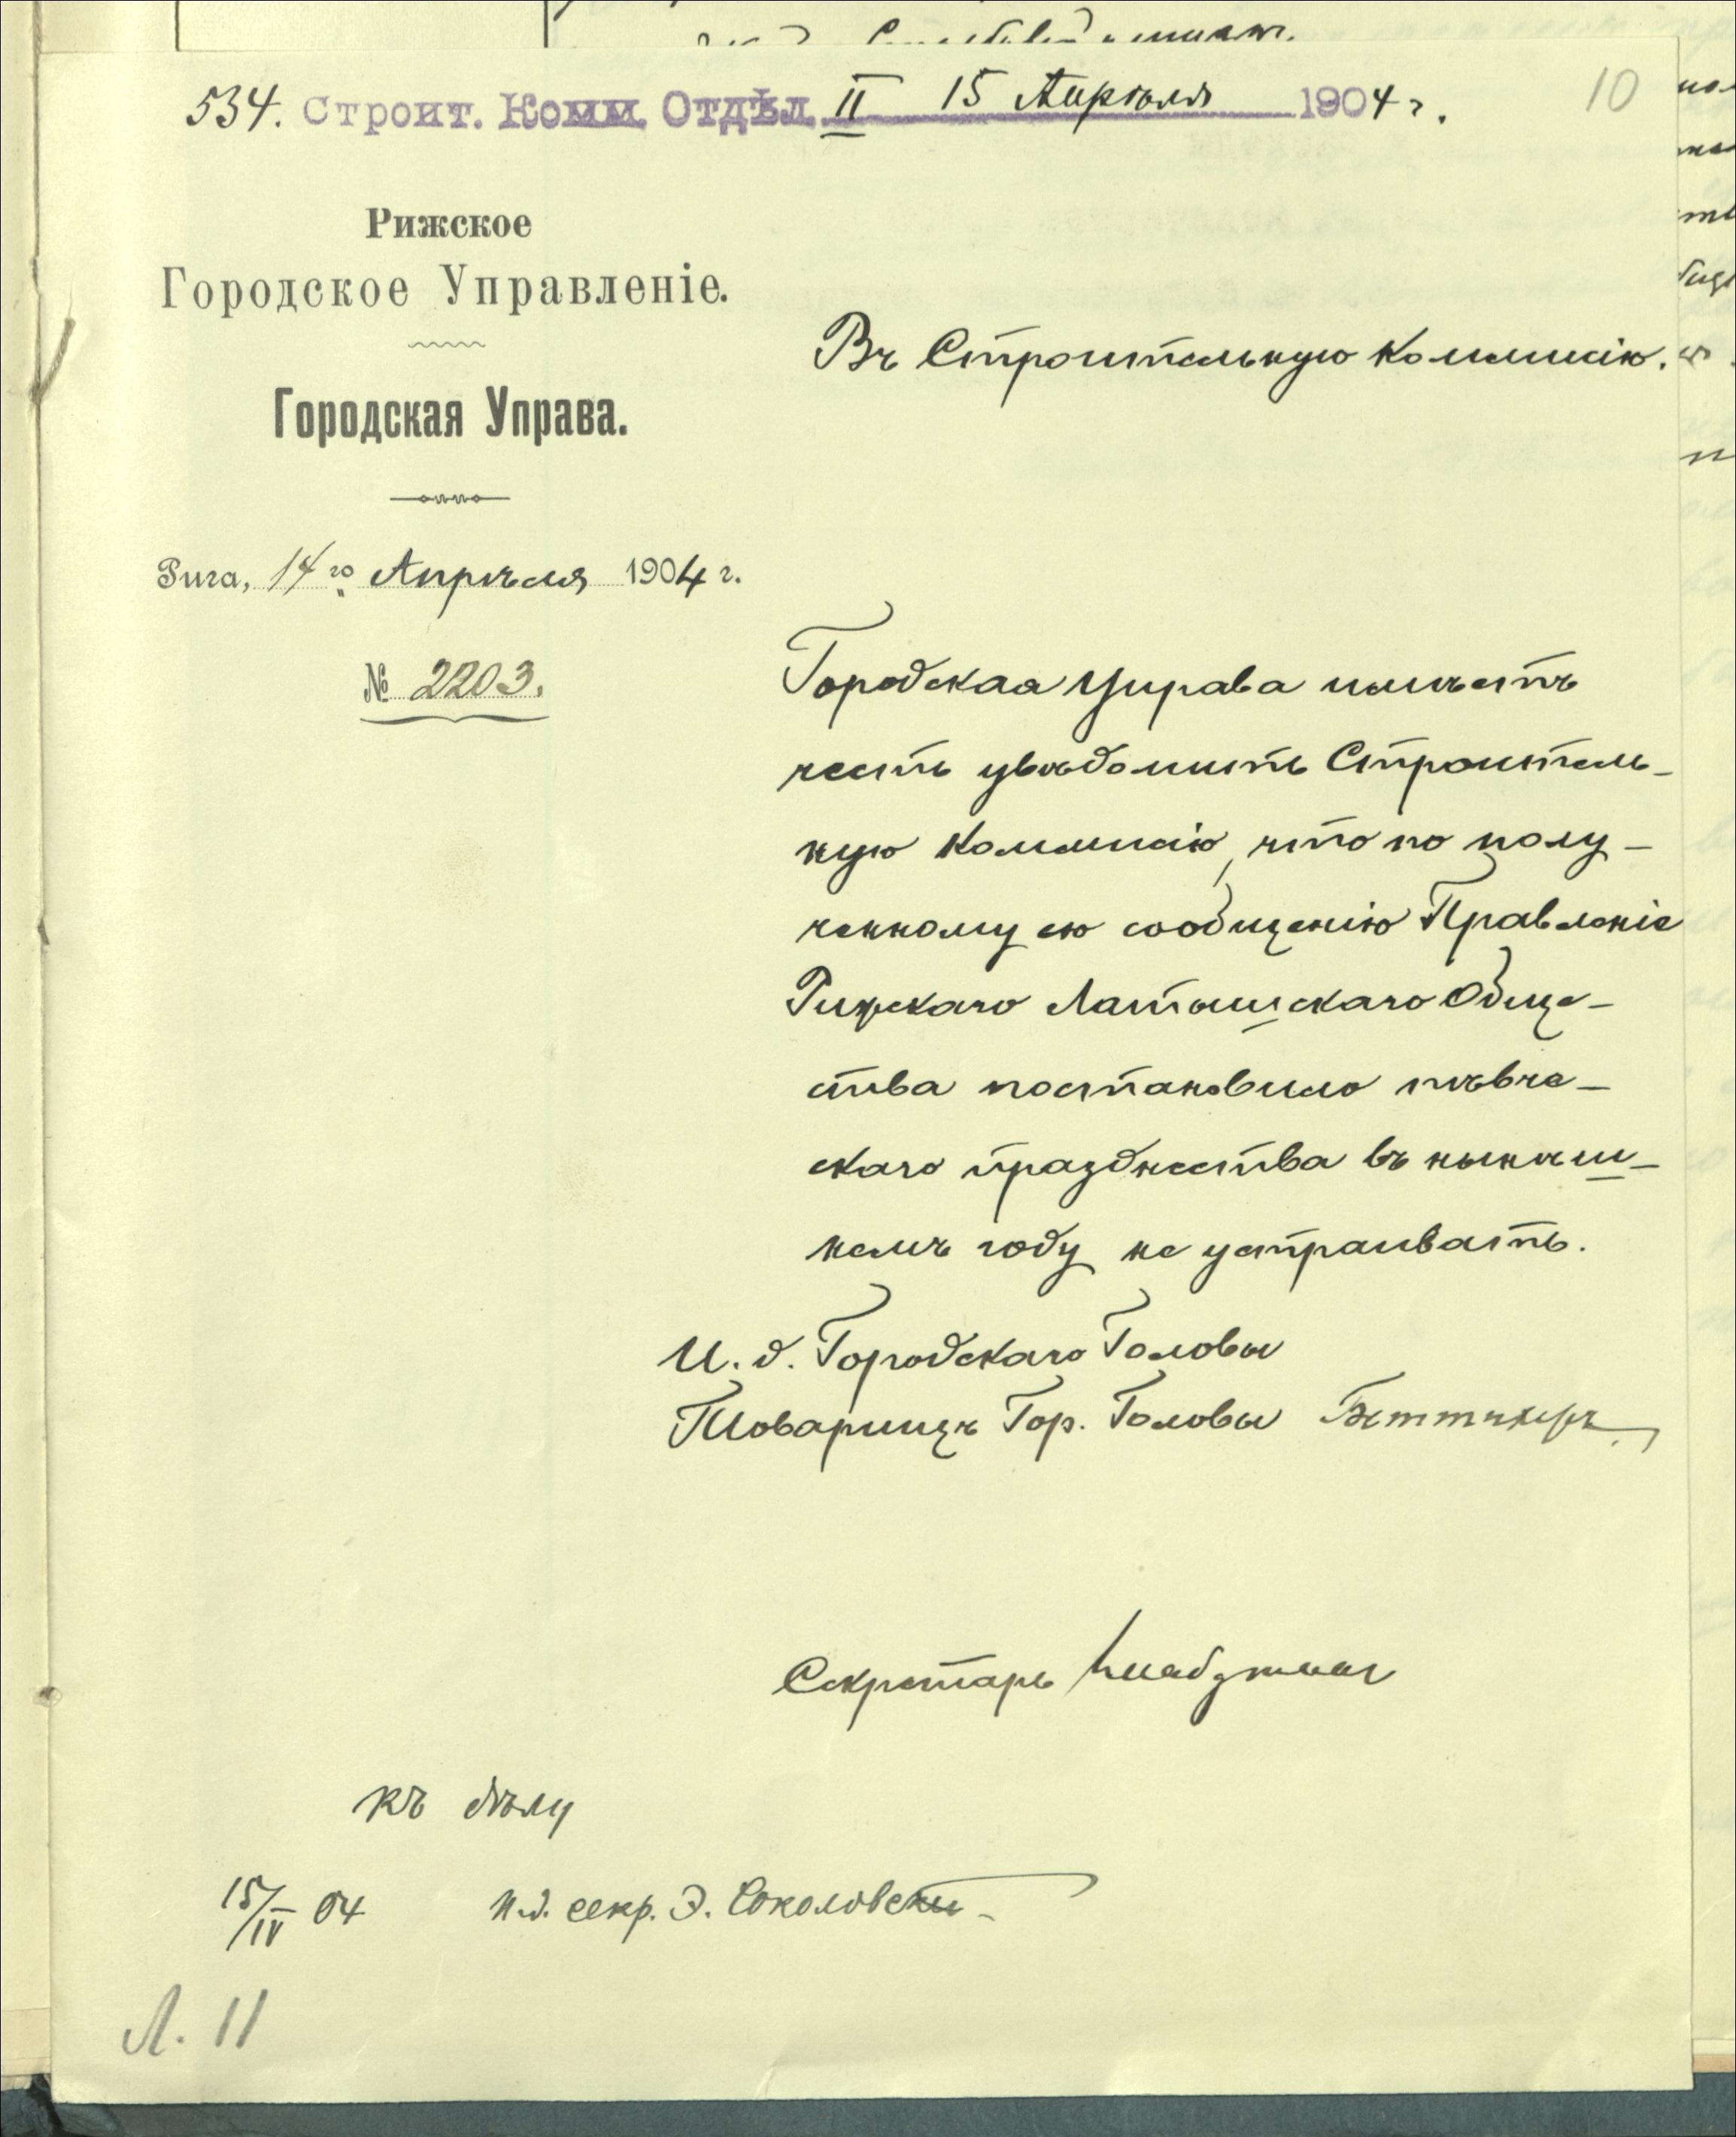 534. Строит. Комм. Отдѣл. II 15 Апрѣля 1904 г.
10
Рижское
Городское Управленіе.
Городская Управа.
Рига, 14го Апрѣля 1904 г.
№ 2203.
Въ Строительную Коммисію.
Городская Управа имѣетъ
честь увѣдомить Строитель-
ную Коммисію, что по полу-
ченному ею сообщенію Правленіе
Рижскаго Латышскаго Обще-
ства постановило пѣвче-
скаго празднества въ нынѣш-
немъ году не устраивать.
И. д. Городскаго Головы
Товарищъ Гор. Головы Беттихеръ
Секретарь
къ дѣлу
15/IV 04 И.д. секр. Э. Соколовскі
Л. 11